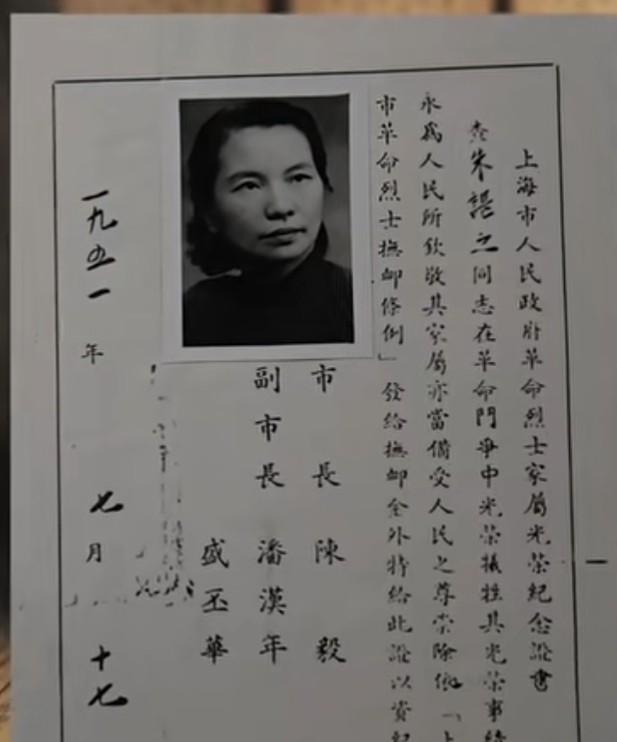 上海市人民政府革命烈士家屬光榮紀念證書
查朱諶之同志在革命鬥爭中光榮犧牲其光榮事
永爲人民所欽敬其家屬亦當備受人民之尊崇除依「上
市革命烈士撫卹條例」發給撫卹金外特給此證以資紀
市長 陳毅
副市長 潘漢年
盛丕華
一九五一年七月十七